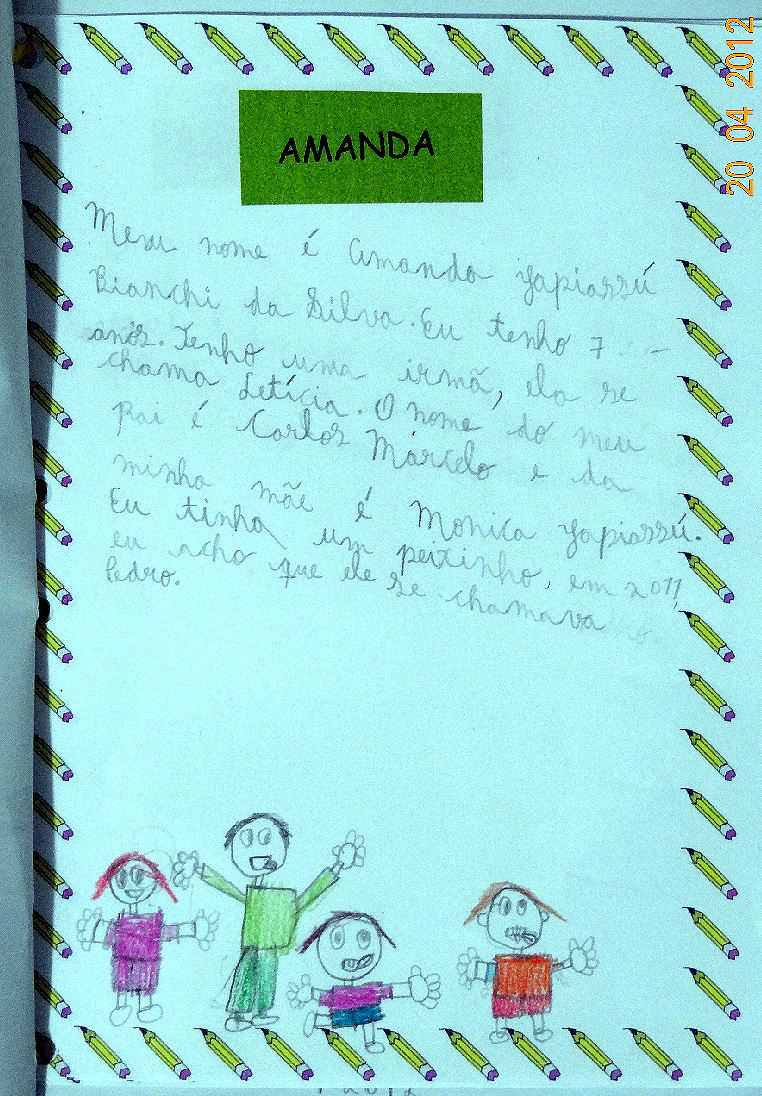 20 04 2012
AMANDA
Meu nome é Amanda Yapiassú
Bianchi da Silva. Eu tenho 7
anos. Tenho uma irmã, ela se
chama Letícia. O nome do meu
pai é Carlos Marcelo e da
minha mãe é Monica Yapiassú.
Eu tinha um peixinho, em 2011,
eu acho que ele se chamava
Pedro.